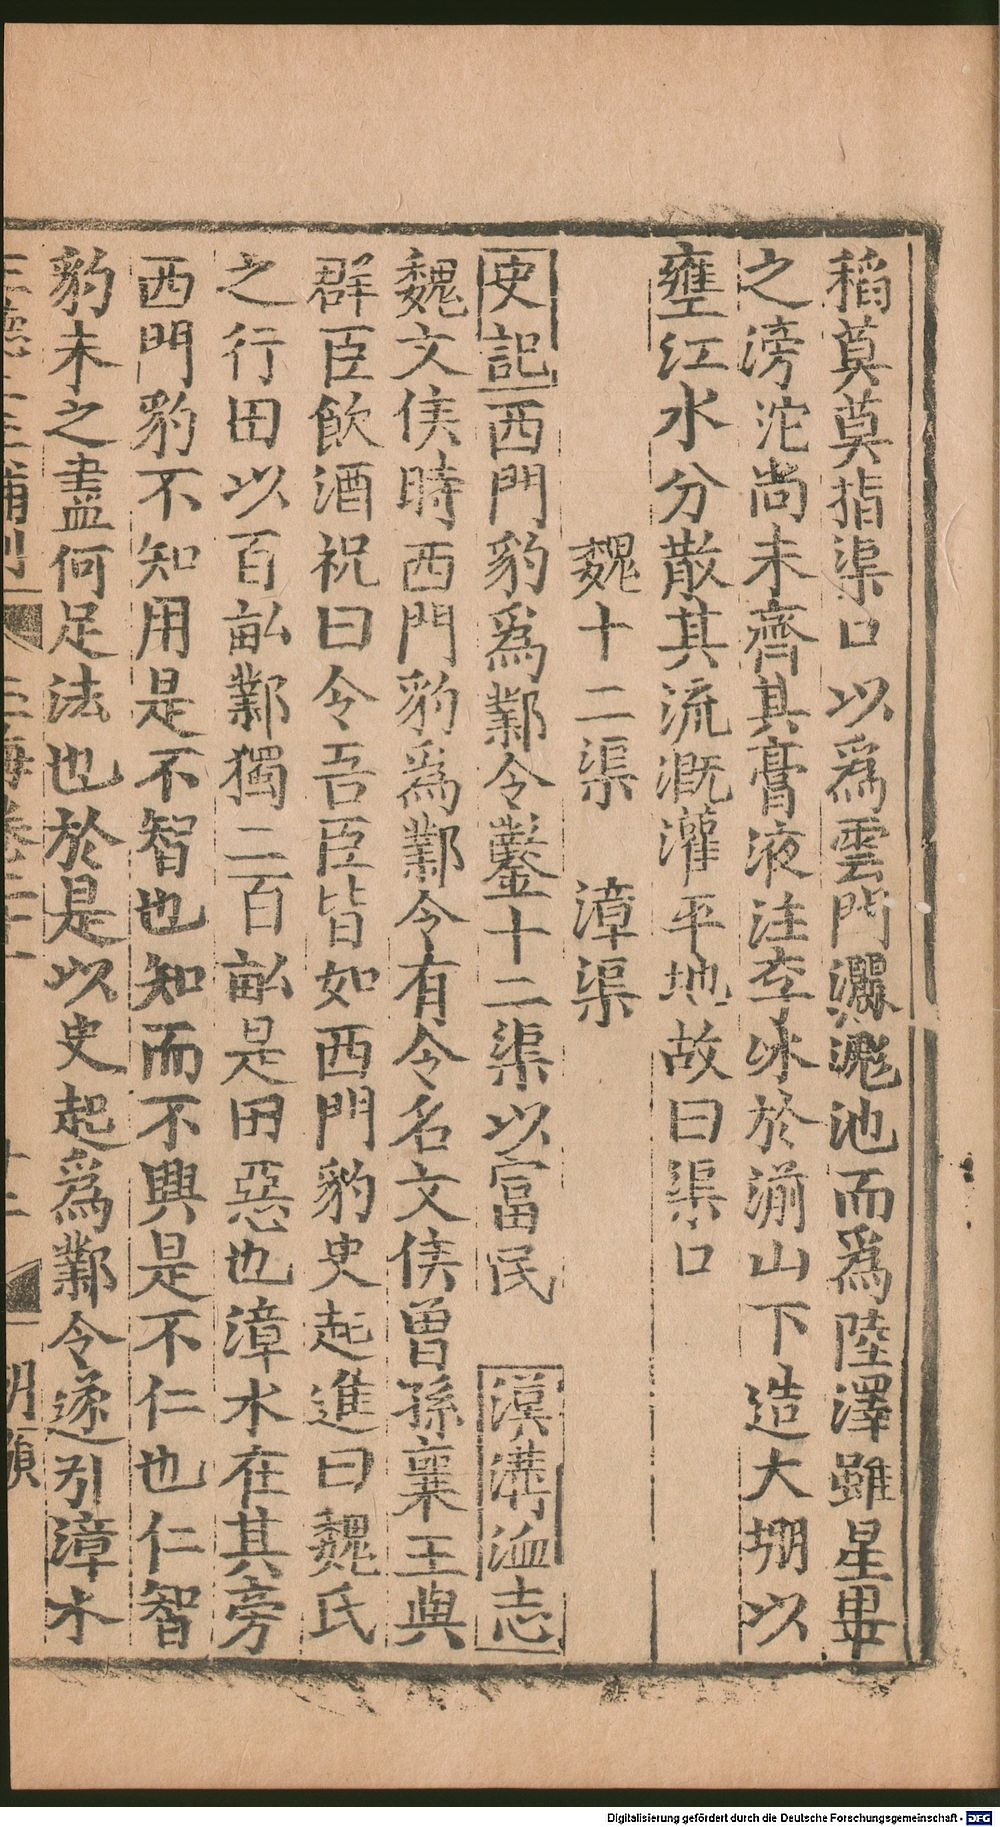 稻莫莫指渠口以爲雲門灑滮池而爲陸澤雖星畢
之滂沱尚未齊其膏液注李冰於湔山下造大堋以
壅江水分散其流溉灌平地故曰渠口
魏十二渠　漳渠
史記西門豹爲鄴令鑿十二渠以富民　漢溝洫志
魏文侯時西門豹爲鄴令有令名文侯曾孫襄王與
群臣飲酒祝曰令吾臣皆如西門豹史起進曰魏氏
之行田以百畝鄴獨二百畝是田惡也漳水在其旁
西門豹不知用是不智也知而不興是不仁也仁智
豹未之盡何足法也於是以史起爲鄴令遂引漳水
Digitalisierung gefördert durch die Deutsche Forschungsgemeinschaft - DFG